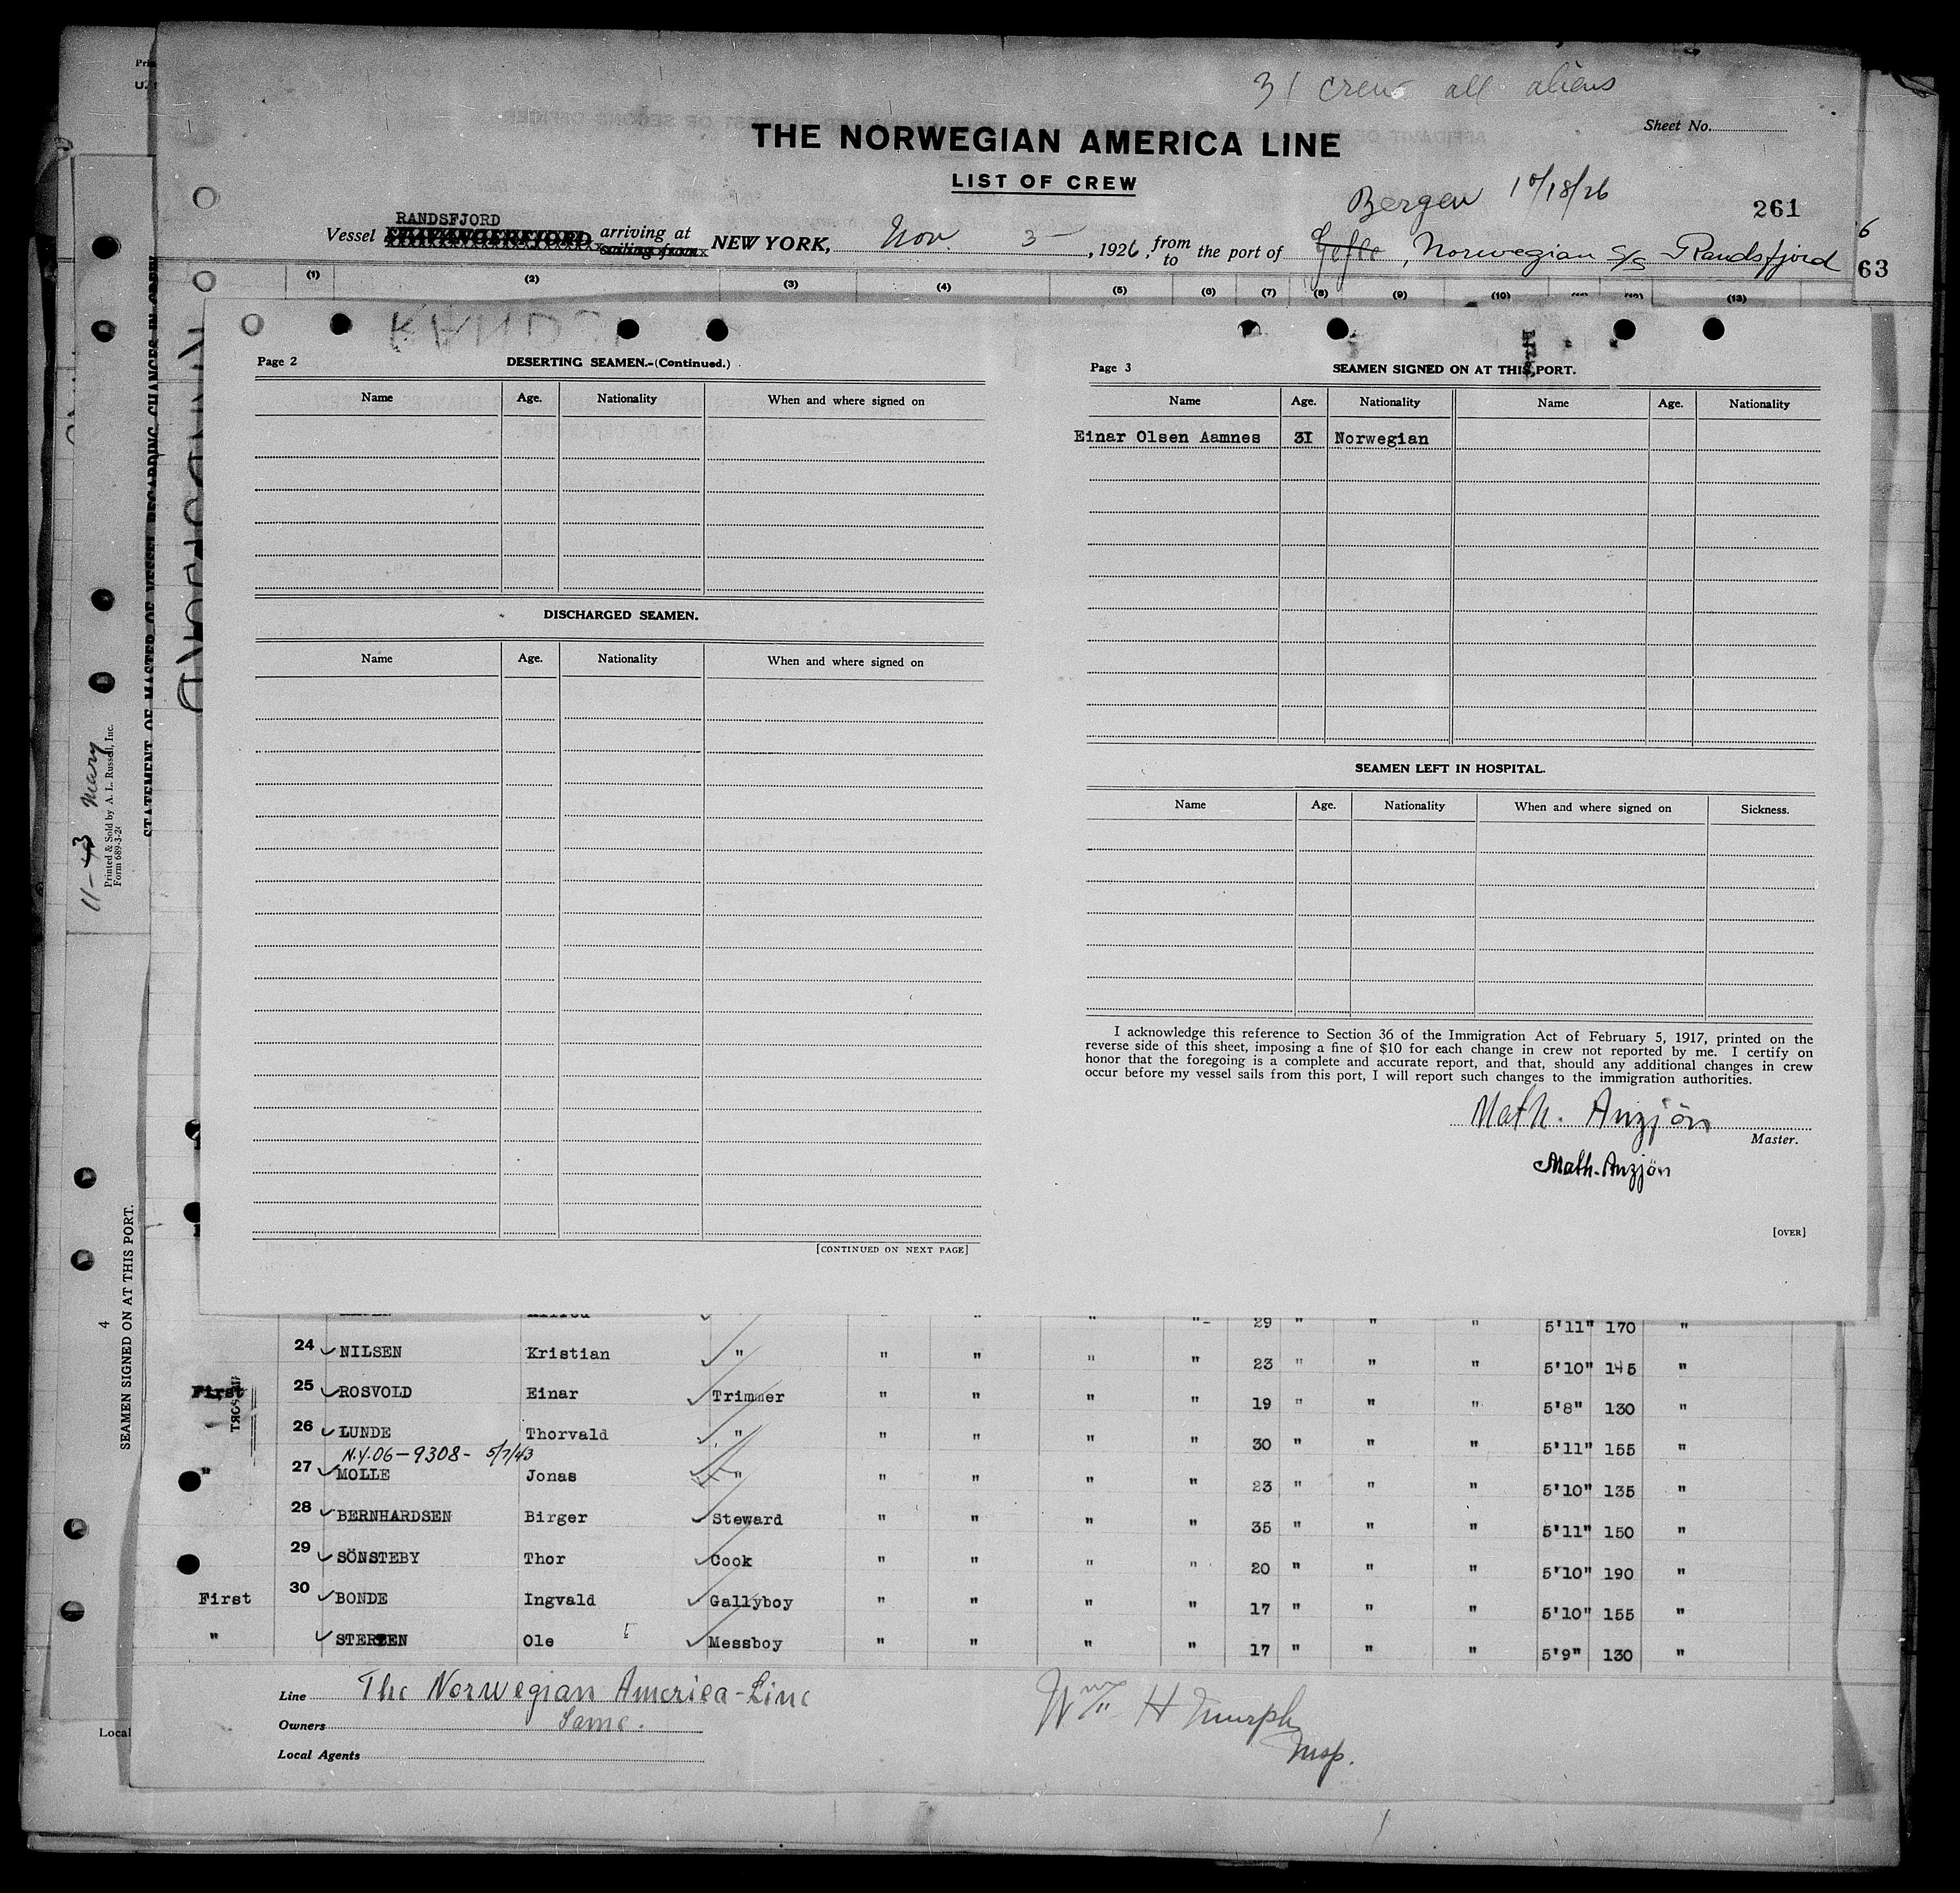 31 crew all aliens
Sheet No.
THE NORWEGIAN AMERICA LINE
LIST OF CREW
Bergen 10/18/26
261
RANDSFJORD
Vessel STAVANGERFJORD arriving at sailing from NEW YORK, Nov. 3 , 1926, from to the port of Gefle, Norwegian S/S Randsfjord
6
63
(1) (2) (3) (4) (5) (6) (7) (8) (9) (10) (13)
Page 2 DESERTING SEAMEN.-(Continued.)
Name Age. Nationality When and where signed on
DISCHARGED SEAMEN.
Name Age. Nationality When and where signed on
[CONTINUED ON NEXT PAGE]
Page 3 SEAMEN SIGNED ON AT THIS PORT.
Name Age. Nationality Name Age. Nationality
Einar Olsen Aamnes 31 Norwegian
SEAMEN LEFT IN HOSPITAL.
Name Age. Nationality When and where signed on Sickness.
I acknowledge this reference to Section 36 of the Immigration Act of February 5, 1917, printed on the
reverse side of this sheet, imposing a fine of $10 for each change in crew not reported by me. I certify on
honor that the foregoing is a complete and accurate report, and that, should any additional changes in crew
occur before my vessel sails from this port, I will report such changes to the immigration authorities.
Math. Anzjön
Master.
Math. Anzjön
[OVER]
" " " " 29 " " " 5'11" 170 "
24 NILSEN Kristian " " " " " 23 " " " 5'10" 145 "
First 25 ROSVOLD Einar Trimmer " " " " 19 " " " 5'8" 130 "
26 LUNDE Thorvald " " " " " 30 " " " 5'11" 155 "
N.Y. 06-9308- 5/7/43
" 27 MOLLE Jonas " " " " " 23 " " " 5'10" 135 "
28 BERNHARDSEN Birger Steward " " " " 35 " " " 5'11" 150 "
29 SÖNSTEBY Thor Cook " " " " 20 " " " 5'10" 190 "
First 30 BONDE Ingvald Gallyboy " " " " 17 " " " 5'10" 155 "
" Ole Messboy " " " " 17 " " " 5'9" 130 "
Line The Norwegian America-Line
Owners Same.
Local Agents
Wm H Murphy
Insp.
STATEMENT OF MASTER OF VESSEL REGARDING CHANGES IN CREW
11-3 Mary
Printed & Sold by A. L. Russell, Inc.
Form 689-3-26
SEAMEN SIGNED ON AT THIS PORT.
4
Local